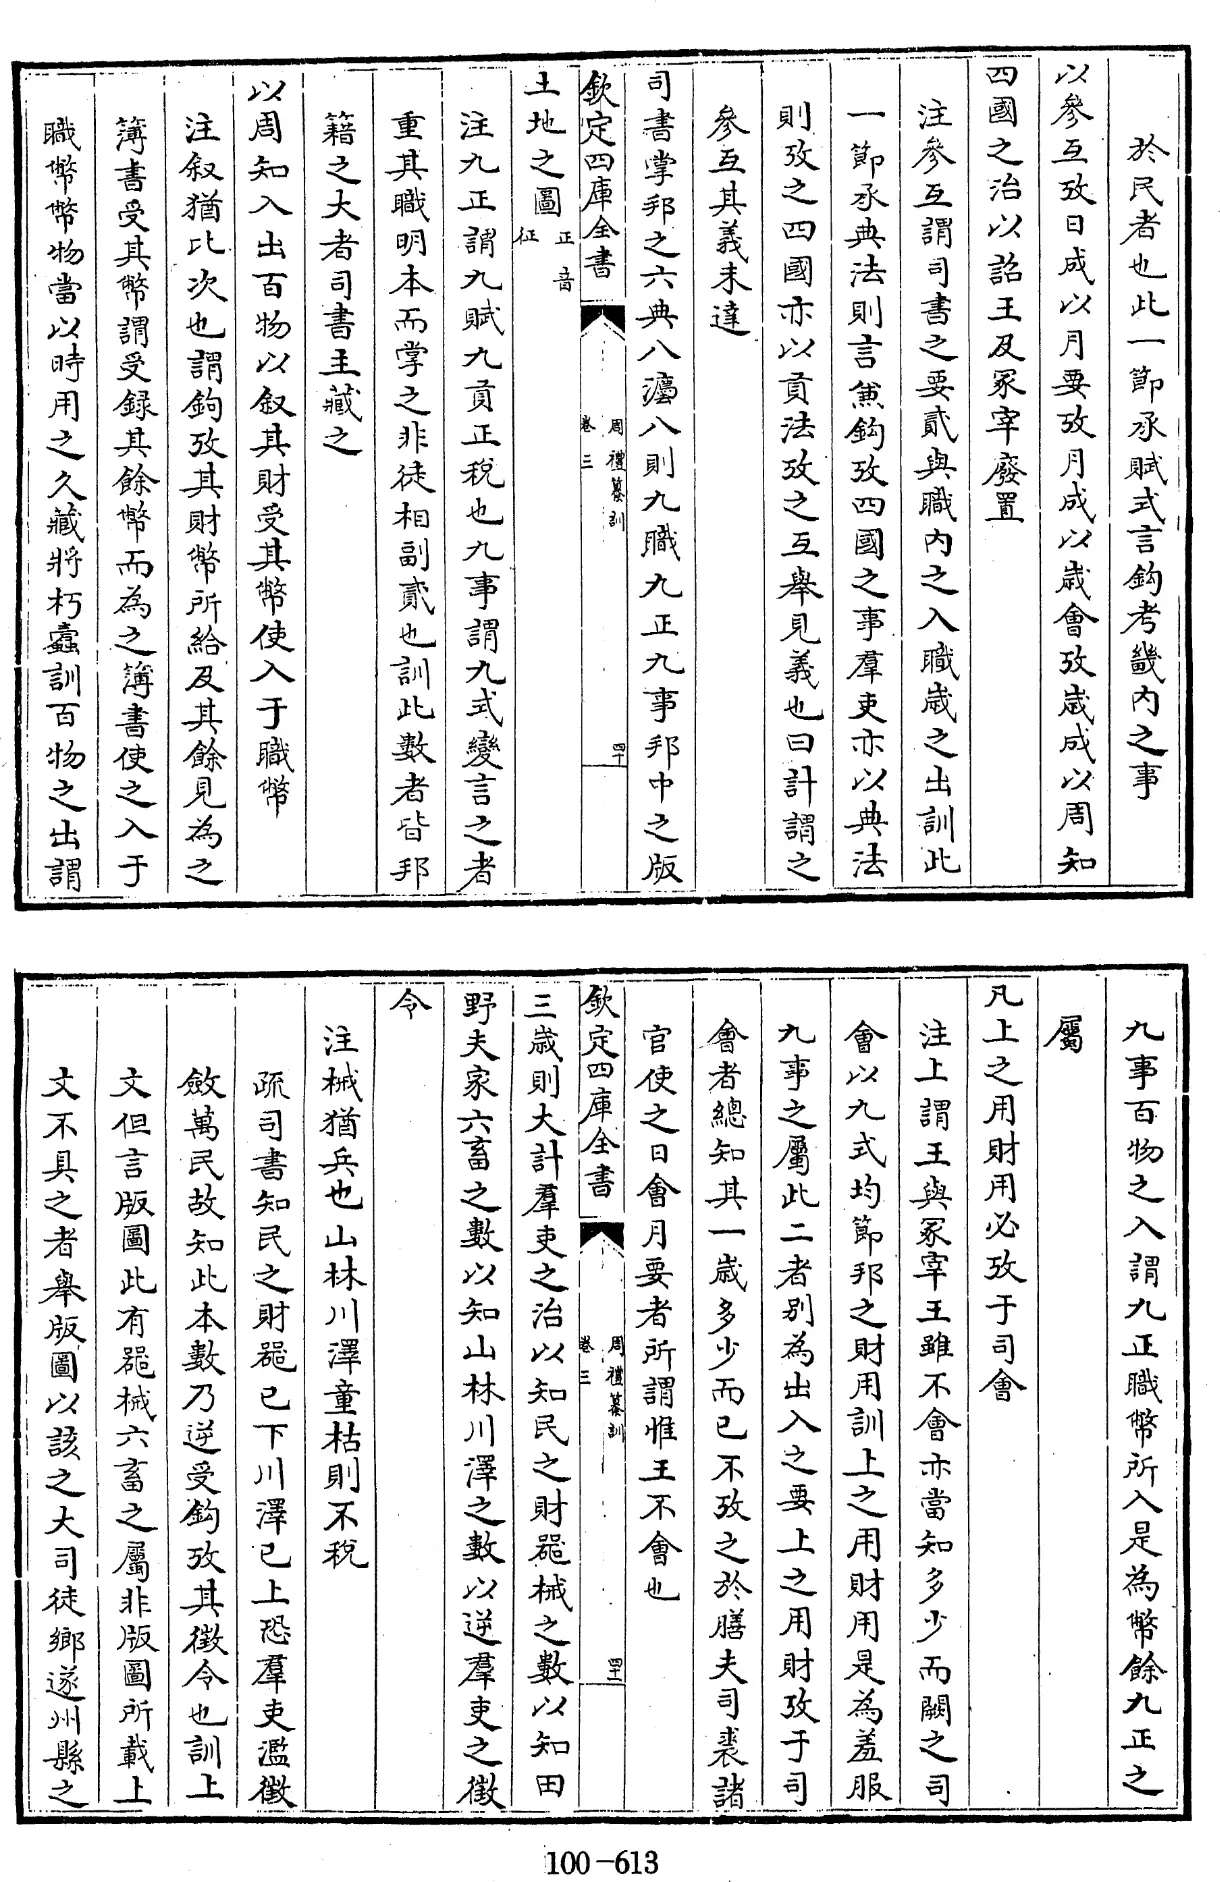 於民者也此一節承賦式言鈎考畿内之事
以參互攷日成以月要攷月成以歲會攷歲成以周知
四國之治以詔王及冢宰廢置
注參互謂司書之要貳與職内之入職歲之出訓此
一節承典法則言兼鈎攷四國之事羣吏亦以典法
則攷之四國亦以貢法攷之互舉見義也曰計謂之
參互其義未達
司書掌邦之六典八灋八則九職九正九事邦中之版
欽定四庫全書
周禮纂訓
卷三
四十
土地之圖正音征
注九正謂九賦九貢正税也九事謂九式變言之者
重其職明本而掌之非徒相副貳也訓此數者皆邦
籍之大者司書主藏之
以周知入出百物以叙其財受其幣使入于職幣
注叙猶比次也謂鈎攷其財幣所給及其餘見為之
簿書受其幣謂受録其餘幣而為之簿書使之入于
職幣幣物當以時用之久藏將朽蠹訓百物之出謂
九事百物之入謂九正職幣所入是為幣餘九正之
屬
凡上之用財用必攷于司會
注上謂王與冢宰王雖不會亦當知多少而闕之司
會以九式均節邦之財用訓上之用財用是為羞服
九事之屬此二者别為出入之要上之用財攷于司
會者總知其一歲多少而已不攷之於膳夫司裘諸
官使之日會月要者所謂惟王不會也
欽定四庫全書
周禮纂訓
卷三
四十一
三歲則大計羣吏之治以知民之財器械之數以知田
野夫家六畜之數以知山林川澤之數以逆羣吏之徵
令
注械猶兵也山林川澤童枯則不税
疏司書知民之財器已下川澤已上恐羣吏濫徵
斂萬民故知此本數乃逆受鈎攷其徵令也訓上
文但言版圖此有器械六畜之屬非版圖所載上
文不具之者舉版圖以該之大司徒鄉遂州縣之
100-613